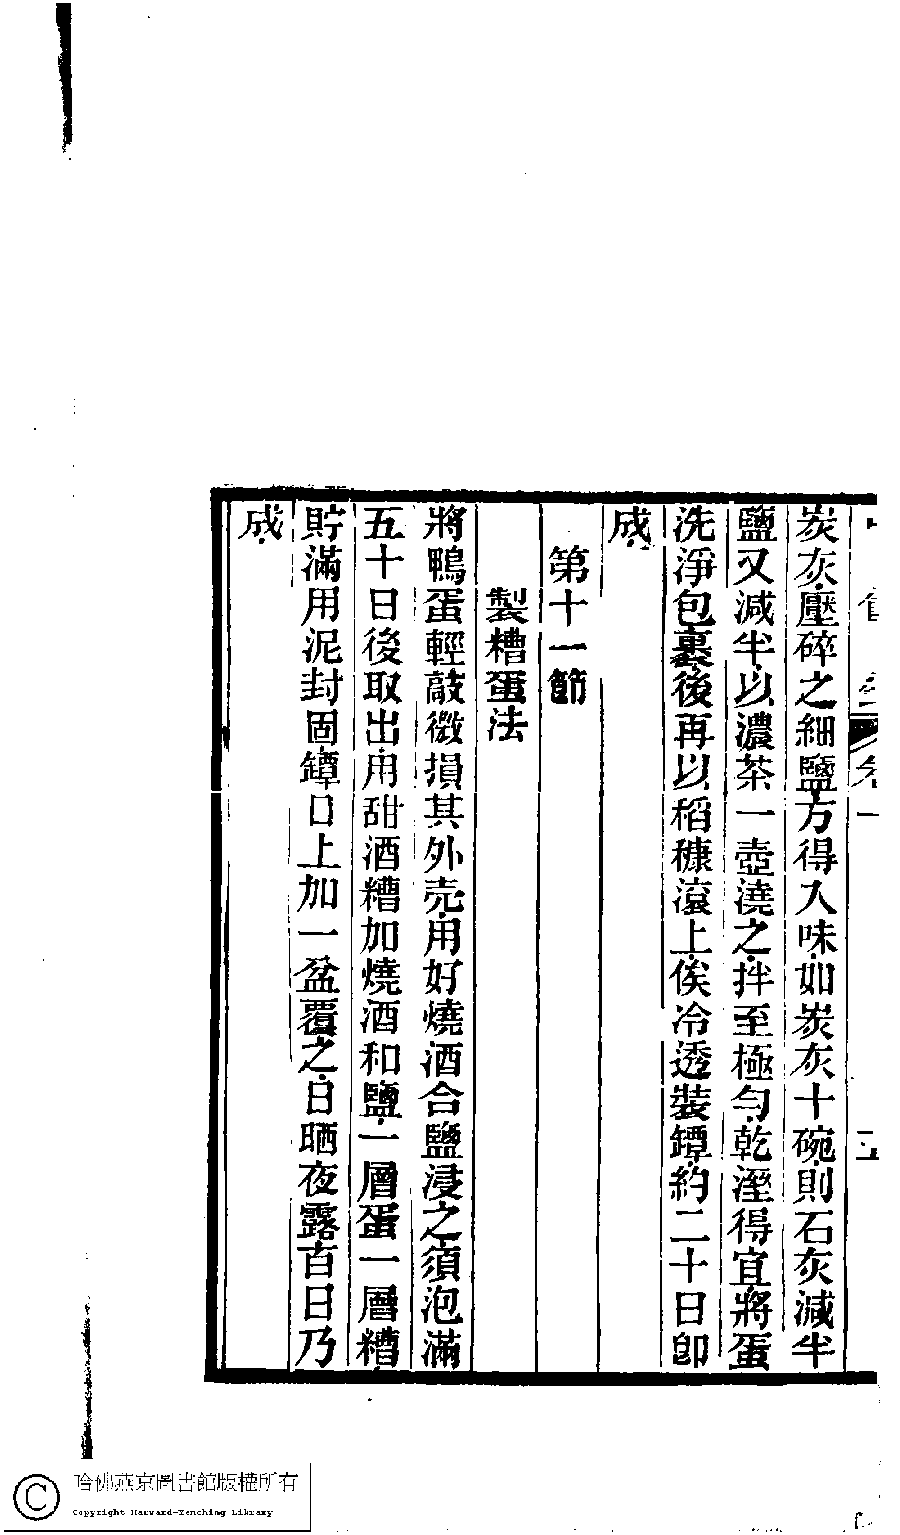 炭灰壓碎之細鹽方得入味如炭灰十碗則石灰減半
鹽又減半以濃茶一壺澆之拌至極勻乾溼得宜將蛋
洗淨包裹後再以稻穅滾上俟冷透裝罈約二十日卽
成
第十一節
製糟蛋法
將鴨蛋輕敲微損其外壳用好燒酒合鹽浸之須泡滿
五十日後取出用甜酒糟加燒酒和鹽一層蛋一層糟
貯滿用泥封固罈口上加一盆覆之日晒夜露百日乃
成
哈佛燕京圖書館版權所有
Copyright Harvard-Yenching Library